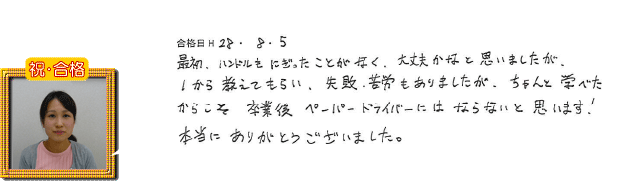 祝・合格
合格日 H 28・ 8・5
最初、ハンドルもにぎったことがなく、大丈夫かなと思いましたが、
1から教えてもらい、失敗、苦労もありましたが、ちゃんと学べた
からこそ 卒業後 ペーパードライバーにはならないと思います!
本当に ありがとうございました。